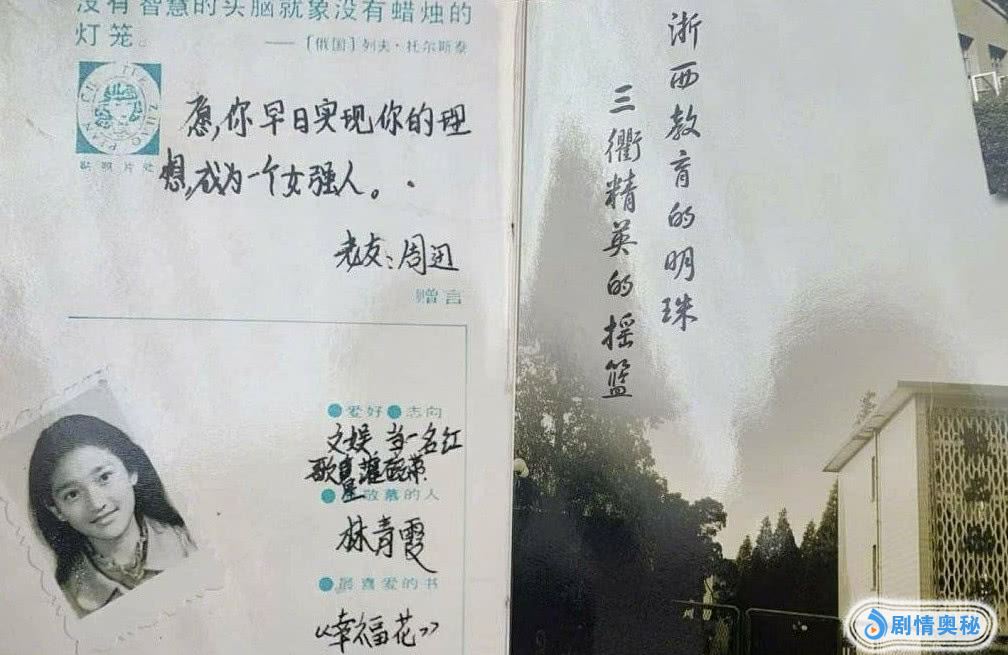 没有智慧的头脑就象没有蜡烛的
灯笼。
——〔俄国〕列夫·托尔斯泰
贴照片处
愿,你早日实现你的理
想,成为一个女强人。
老友:周迅
赠言
爱好 志向
文娱 当一名红
歌星
敬慕的人
林青霞
最喜爱的书
《幸福花》
浙西教育的明珠
三衢精英的摇篮
剧情奥秘